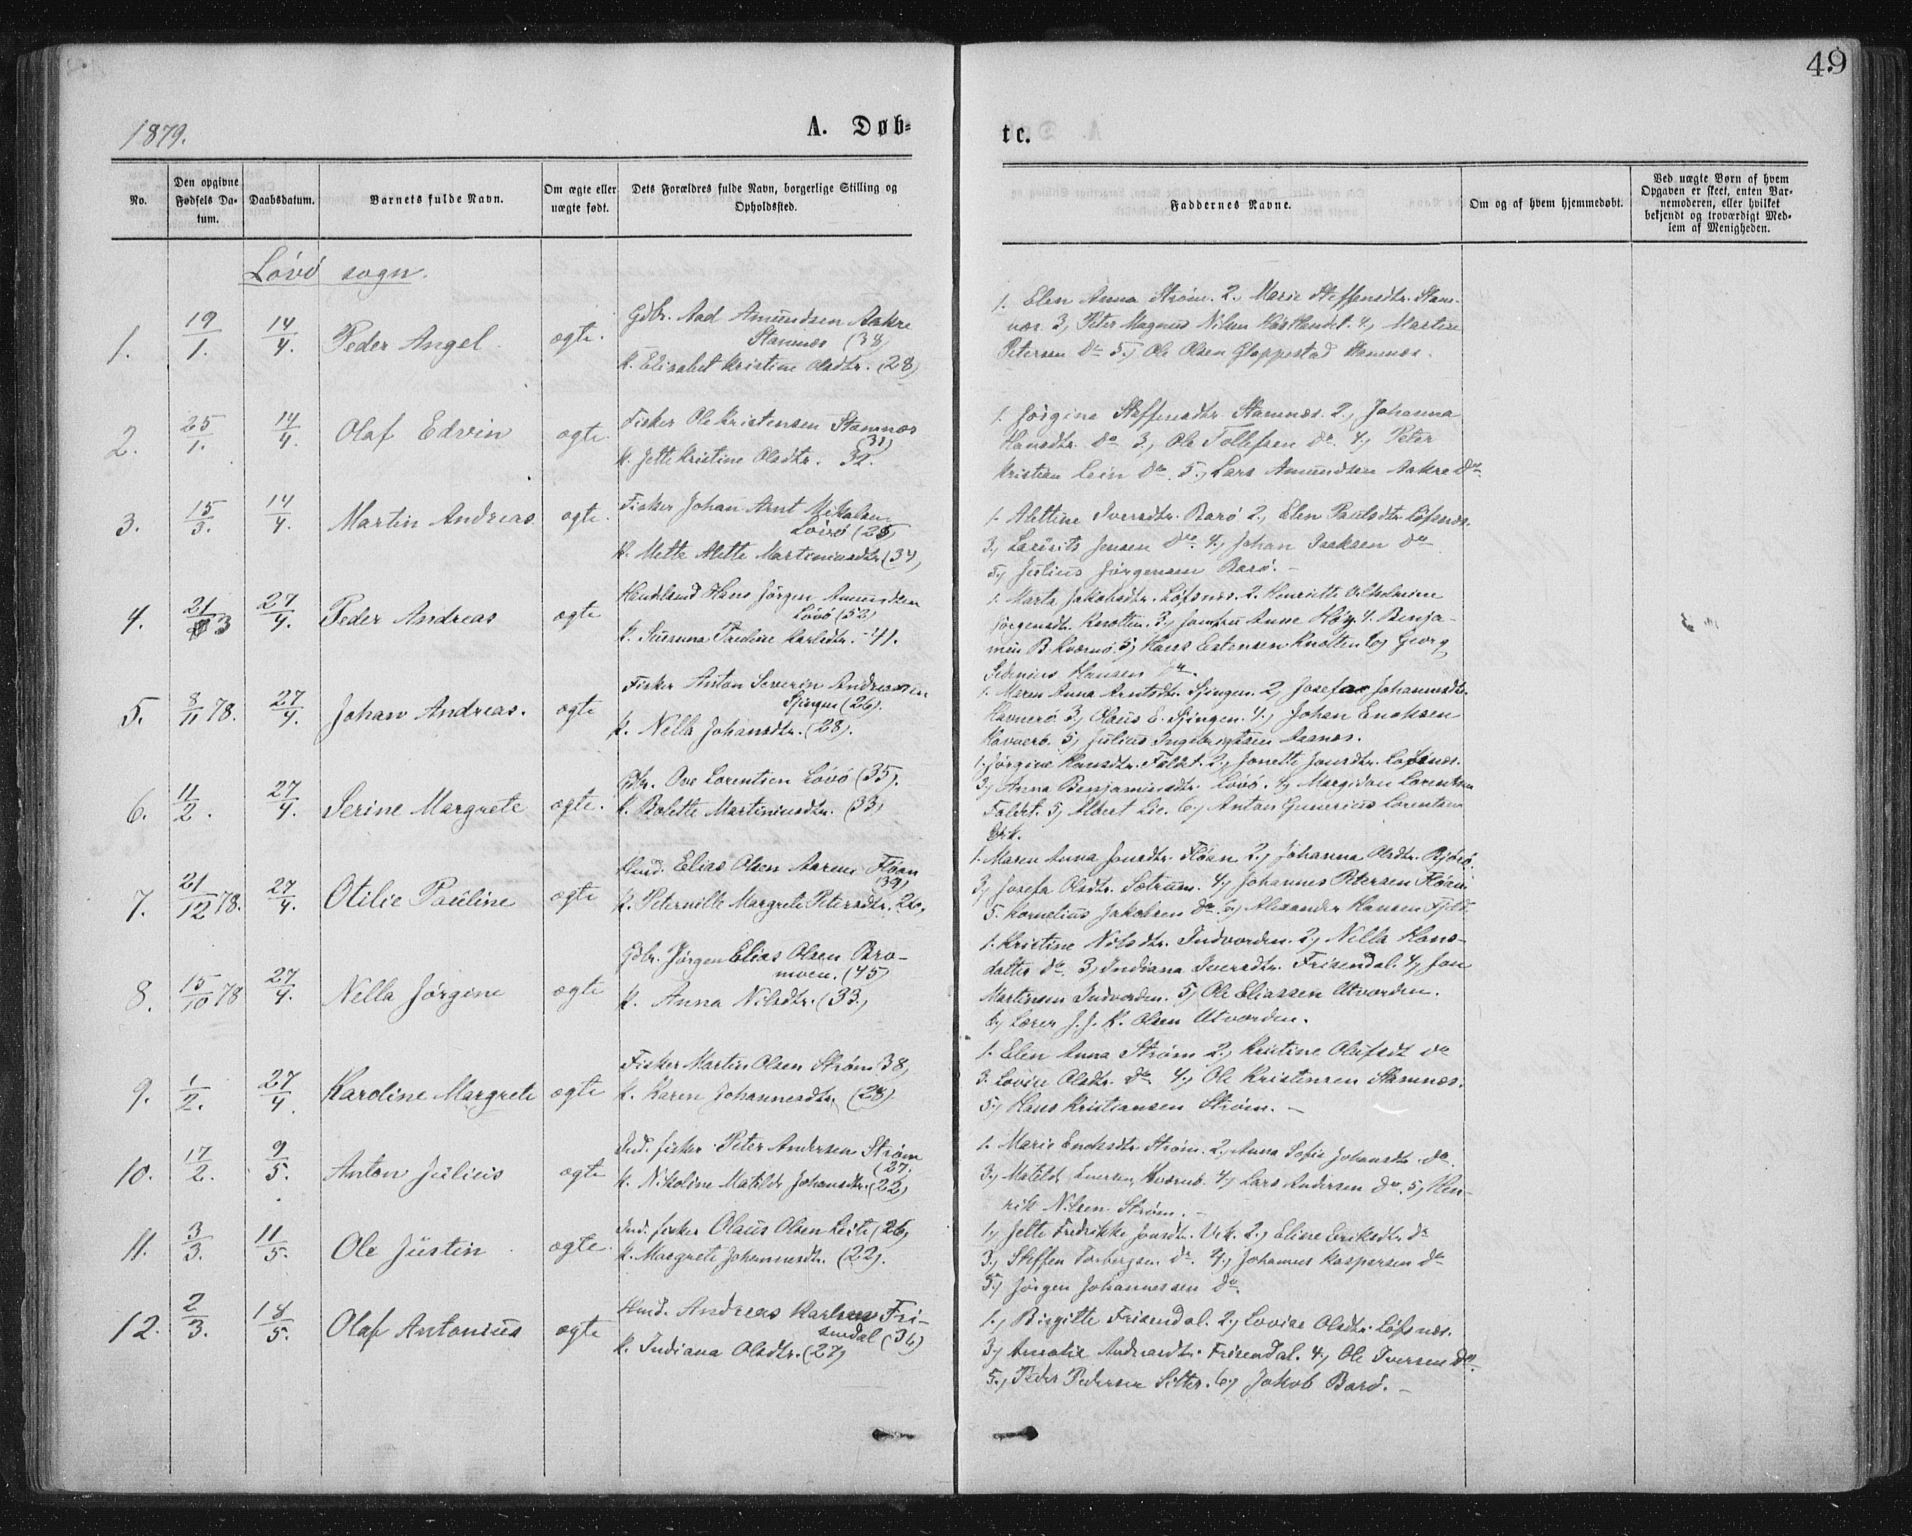 49
1879.
A. Døb-
te.
No.
Den opgivne Fødsels Da-tum.
Daabsdatum.
Barnets fulde Navn.
Om ægte eller uægte født.
Dets Forældres fulde Navn, borgerlige Stilling og Opholdssted.
Faddernes Navne.
Om og af hvem hjemmedøbt.
Ved uægte Børn af hvem Opgaven er skeet, enten Bar-nemoderen, eller hvilket bekjendt og troværdigt Med-lem af Menigheden.
Løvø sogn.
1. 19/1. 14/4. Peder Angel ægte.
Gdbr. Aad Amundsen Aakre
Stamnæs (38)
K. Elisabet Kristine Olsdtr. (28)
1. Elen Anna Strøm. 2, Marie Steffensdtr. Stam-
næs 3, Peter Magnus Nilsen 4, Martin
Petersen do 5, Ole Olsen Glappestad Stamnæs.
2. 25/1. 14/4. Olaf Edvin ægte
Fisker Ole Kristensen Stamnæs
(31)
K. Jette Kristine Olsdtr. 32.
1. Jørgine Steffensdtr Stamnæs. 2, Johanna
Hansdtr. do 3, Ole Tollefsen do. 4, Peter
Kristian Lein do. 5, Lars Amundsen Aakre do
3. 15/3. 14/4. Martin Andreas ægte.
Fisker Johan Arnt Mikalsen
Løvø (25)
K. Mette Alette Martiniusdtr (34)
1. Alettine Iversdtr. Barø 2, Elen Paulsdtr Løfsnæs.
3, Laurits Jensen do. 4, Johan Isaksen do
5, Julius Jørgensen Barø. -
4. 21/3 27/4. Peder Andreas ægte
Handelsmd Hans Jørgen Amundsen
Løvø (52)
K. Susanna Karlsdtr. 41.
1. Marta Jakobsdtr. Løfsnæs. 2. Henriette Vilhelmine
Jørgensdt. Knotten. 3, Jomfru Anne Høy 4. Benja-
min B. Kværnø. 5, Hans Estensen Knotten 6, Georg
Sedenius Hansen do.
5. 8/11 78. 27/4. Johan Andreas. ægte
Fisker Anton Severin Andreassen
Spingen (26).
K. Nella Johansdtr. (28).
1. Maren Anna Arntsdt. Spingen. 2, Josefa Johannesdtr.
Havnerø. 3, Olaus E. Spingen. 4, Johan Enoksen
Havnerø. 5, Julius Ingebrigtsen Aasnes.
6. 11/2. 27/4. Serine Margrete ægte.
Gdbr. Ove Lorentsen Løvø (35).
K. Bolette Martiniusdtr. (33)
1. Jørgine Hansdtr. Faldet. 2, Jonette Jonsdtr. Løfsnæs.
3, Anna Benjaminsdtr. Løvø. 4, Mergidon Lorentsen
Faldet. 5, Albert Lie. 6, Anton Gunerius Lorentsen
7. 21/12 78. 27/4. Otilie Pauline ægte
Hmd. Elias Olsen Aarem Fløan
(39)
K. Peternille Margrete Petersdtr. 26,
1. Maren Anna Jonsdtr. Fløan 2, Johanna Olsdtr. Bjørø.
3, Josefa Olsdtr. Sætrum. 4, Johannes Petersen Fløan
5. Kornelius Jakobsen do. 6, Alexander Hansen Fjeld.
8. 15/10 78 27/4. Nella Jørgine ægte
Gdbr. Jørgen Elias Olsen Bro-
moen. (45)
K. Anna Nilsdtr. (33,)
1. Kristine Nilsdtr. Indvorden. 2, Nella Hans-
datter do. 3, Indiana Iversdtr. Frisendal. 4, Jon
Martinsen Indvorden. 5, Ole Eliassen Utvorden.
6, Lærer J. J. K. Olsen Utvorden.
9. 1/2. 27/4. Karoline Margrete ægte
Fisker Martin Olsen Strøm 38,
K. Karen Johannesdtr. (28)
1. Elen Anna Strøm 2, Kristine Olufsdt do
3. Lovise Olsdtr. do 4, Ole Kristensen Stamnæs.
5, Hans Kristiansen Strøm. -
10. 17/2. 9/5. Anton Julius ægte
Ind. fisker Peter Andersen Strøm
(27.
K. Nikoline Matilde Johansdtr. (22)
1. Marie Enoksdtr Strøm. 2, Anna Sofie Johansdtr. do.
3, Matilde Iversen Kværnø. 4, Lars Andersen do. 5, Hen-
rik Nilsen Strøm. -
11. 3/3. 11/5. Ole Justin ægte.
Ind. fisker Olaus Olsen Leite (26,
K. Margrete Johannesdtr. (22).
1, Jette Fredrikke Jonsdt. Vik. 2, Eline Eriksdt. do
3, Steffen Torbergsen do. 4, Johannes Kaspersen do
5, Jørgen Johannessen do.
12. 2/3. 18/5. Olaf Antonius ægte
Hmd. Andreas Karlsen Fri-
sendal (36)
K. Indiana Olsdtr. (27)
1, Birgitte Frisendal. 2, Lovise Olsdtr. Løfsnæs.
3, Amalie Andreasdtr. Frisendal. 4, Ole Iversen do.
5, Peder Pedersen Sæter. 6, Jakob Barø. -